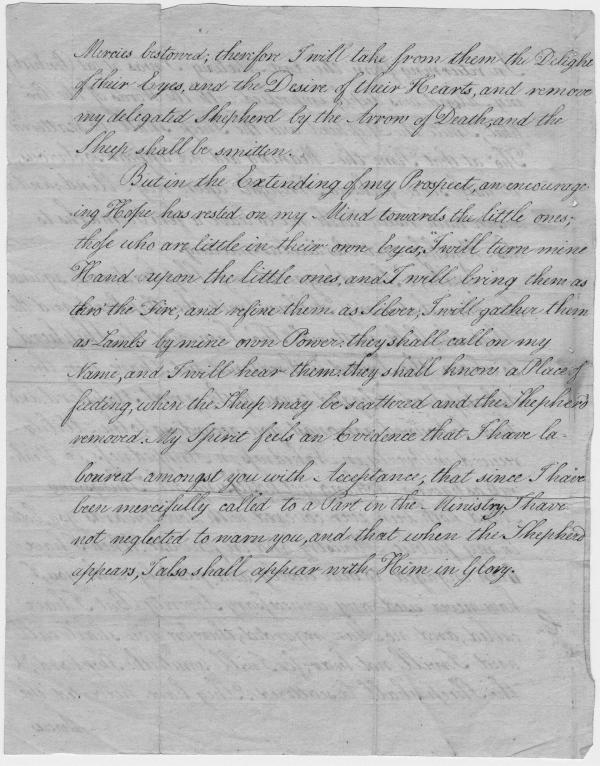 Mercies bestowed; therefore I will take from them the Delight
of their Eyes, and the Desire of their Hearts, and remove
my delegated Shepherd by the Arrow of Death, and the
Sheep shall be smitten.
But in the Extending of my Prospect, an encourag-
ing Hope has rested on my Mind towards the little ones;
those who are little in their own Eyes, "I will turn mine
Hand upon the little ones, and I will bring them as
thro' the Fire, and refine them as Silver; I will gather them
as Lambs by mine own Power: they shall call on my
Name, and I will hear them: they shall know a Place of
feeding, when the Sheep may be scattered and the Shepherd
removed. My Spirit feels an Evidence that I have la-
boured amongst you with Acceptance; that since I have
been mercifully called to a Part in the Ministry, I have
not neglected to warn you, and that when the Shepherd
appears, I also shall appear with Him in Glory.